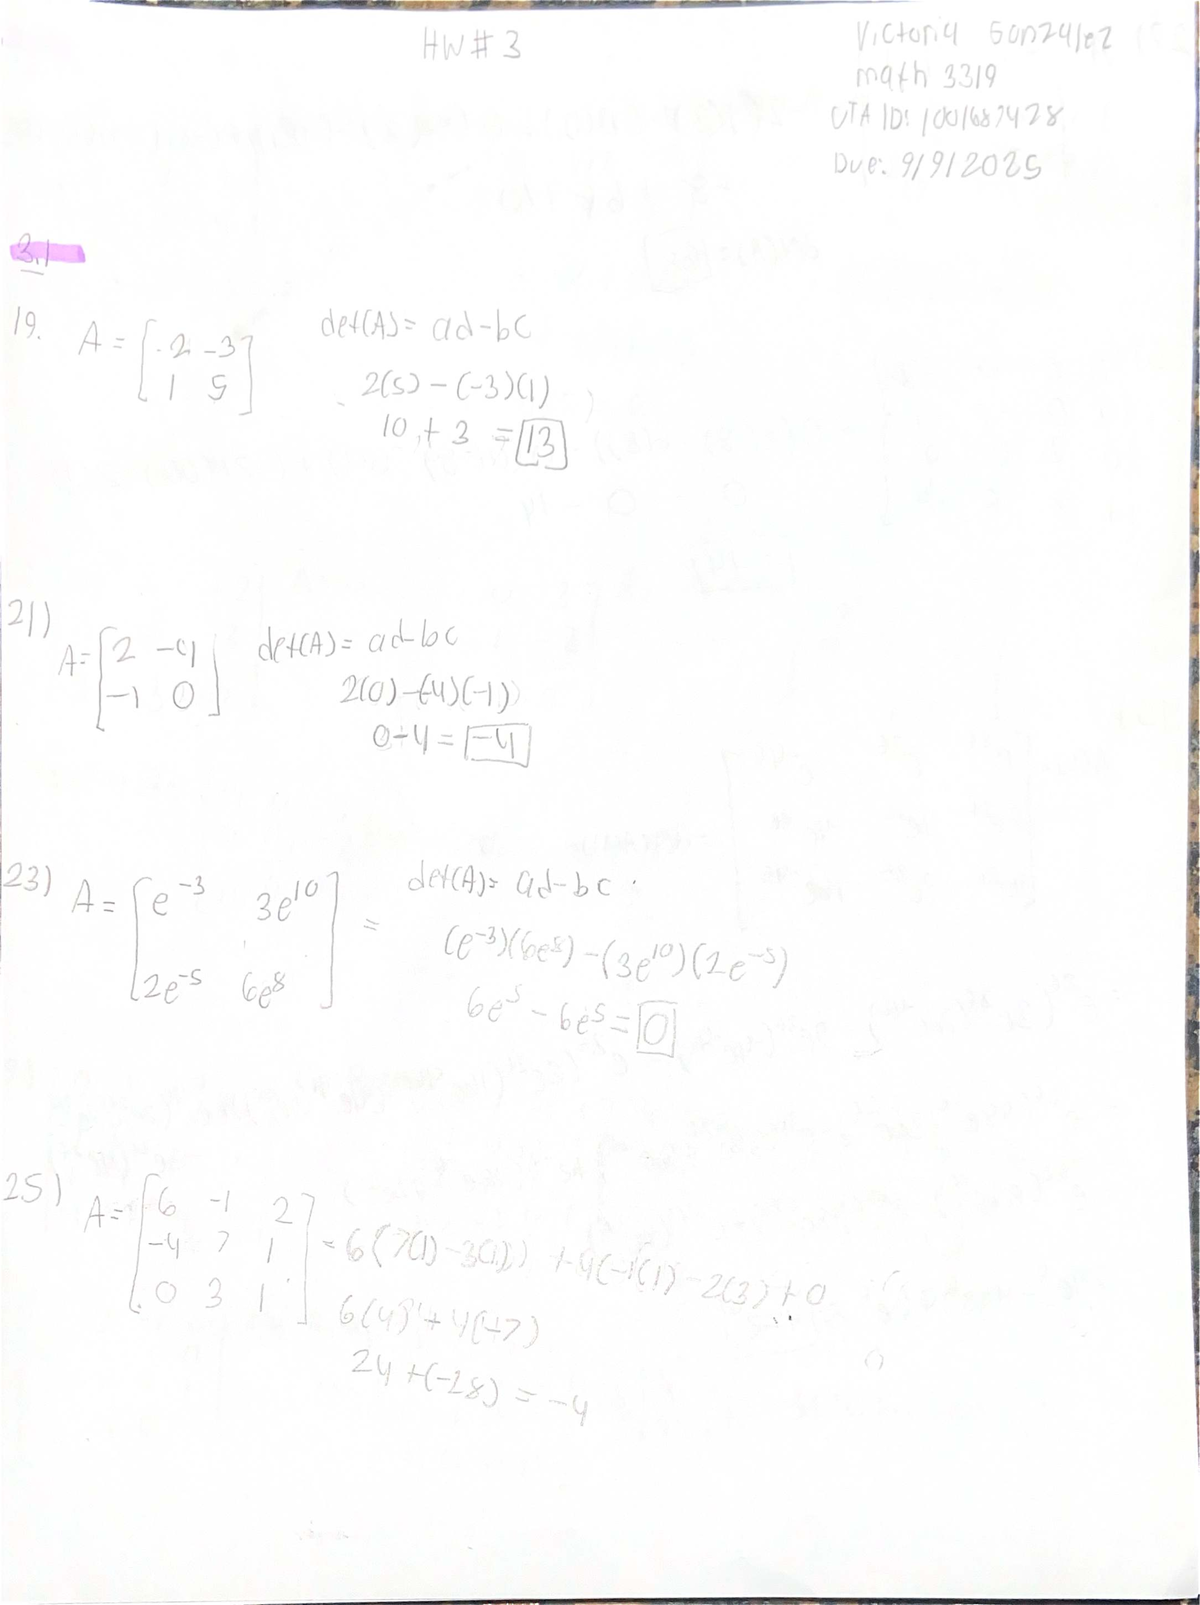 HW # 3
Victoria Gonzalez
math 3319
UTA ID: 1001687428
Due: 9/9/2025
3.1
19. A = [2 -3
1 5]
det(A) = ad-bc
2(5) - (-3)(1)
10 + 3 = 13
21)
A = [2 -4
-1 0]
det(A) = ad-bc
2(0)-(-4)(-1)
0-4 = -4
23) A = [e^-3 3e^10
2e^-5 6e^8] =
det(A) = ad-bc
(e^-3)(6e^8) - (3e^10)(2e^-5)
6e^5 - 6e^5 = 0
25) A = [6 -1 2
-4 7 1
0 3 1]
= 6(7(1) - 3(1)) + 4(-1(1) - 2(3) + 0
6(4) + 4(-7)
24 + (-28) = -4